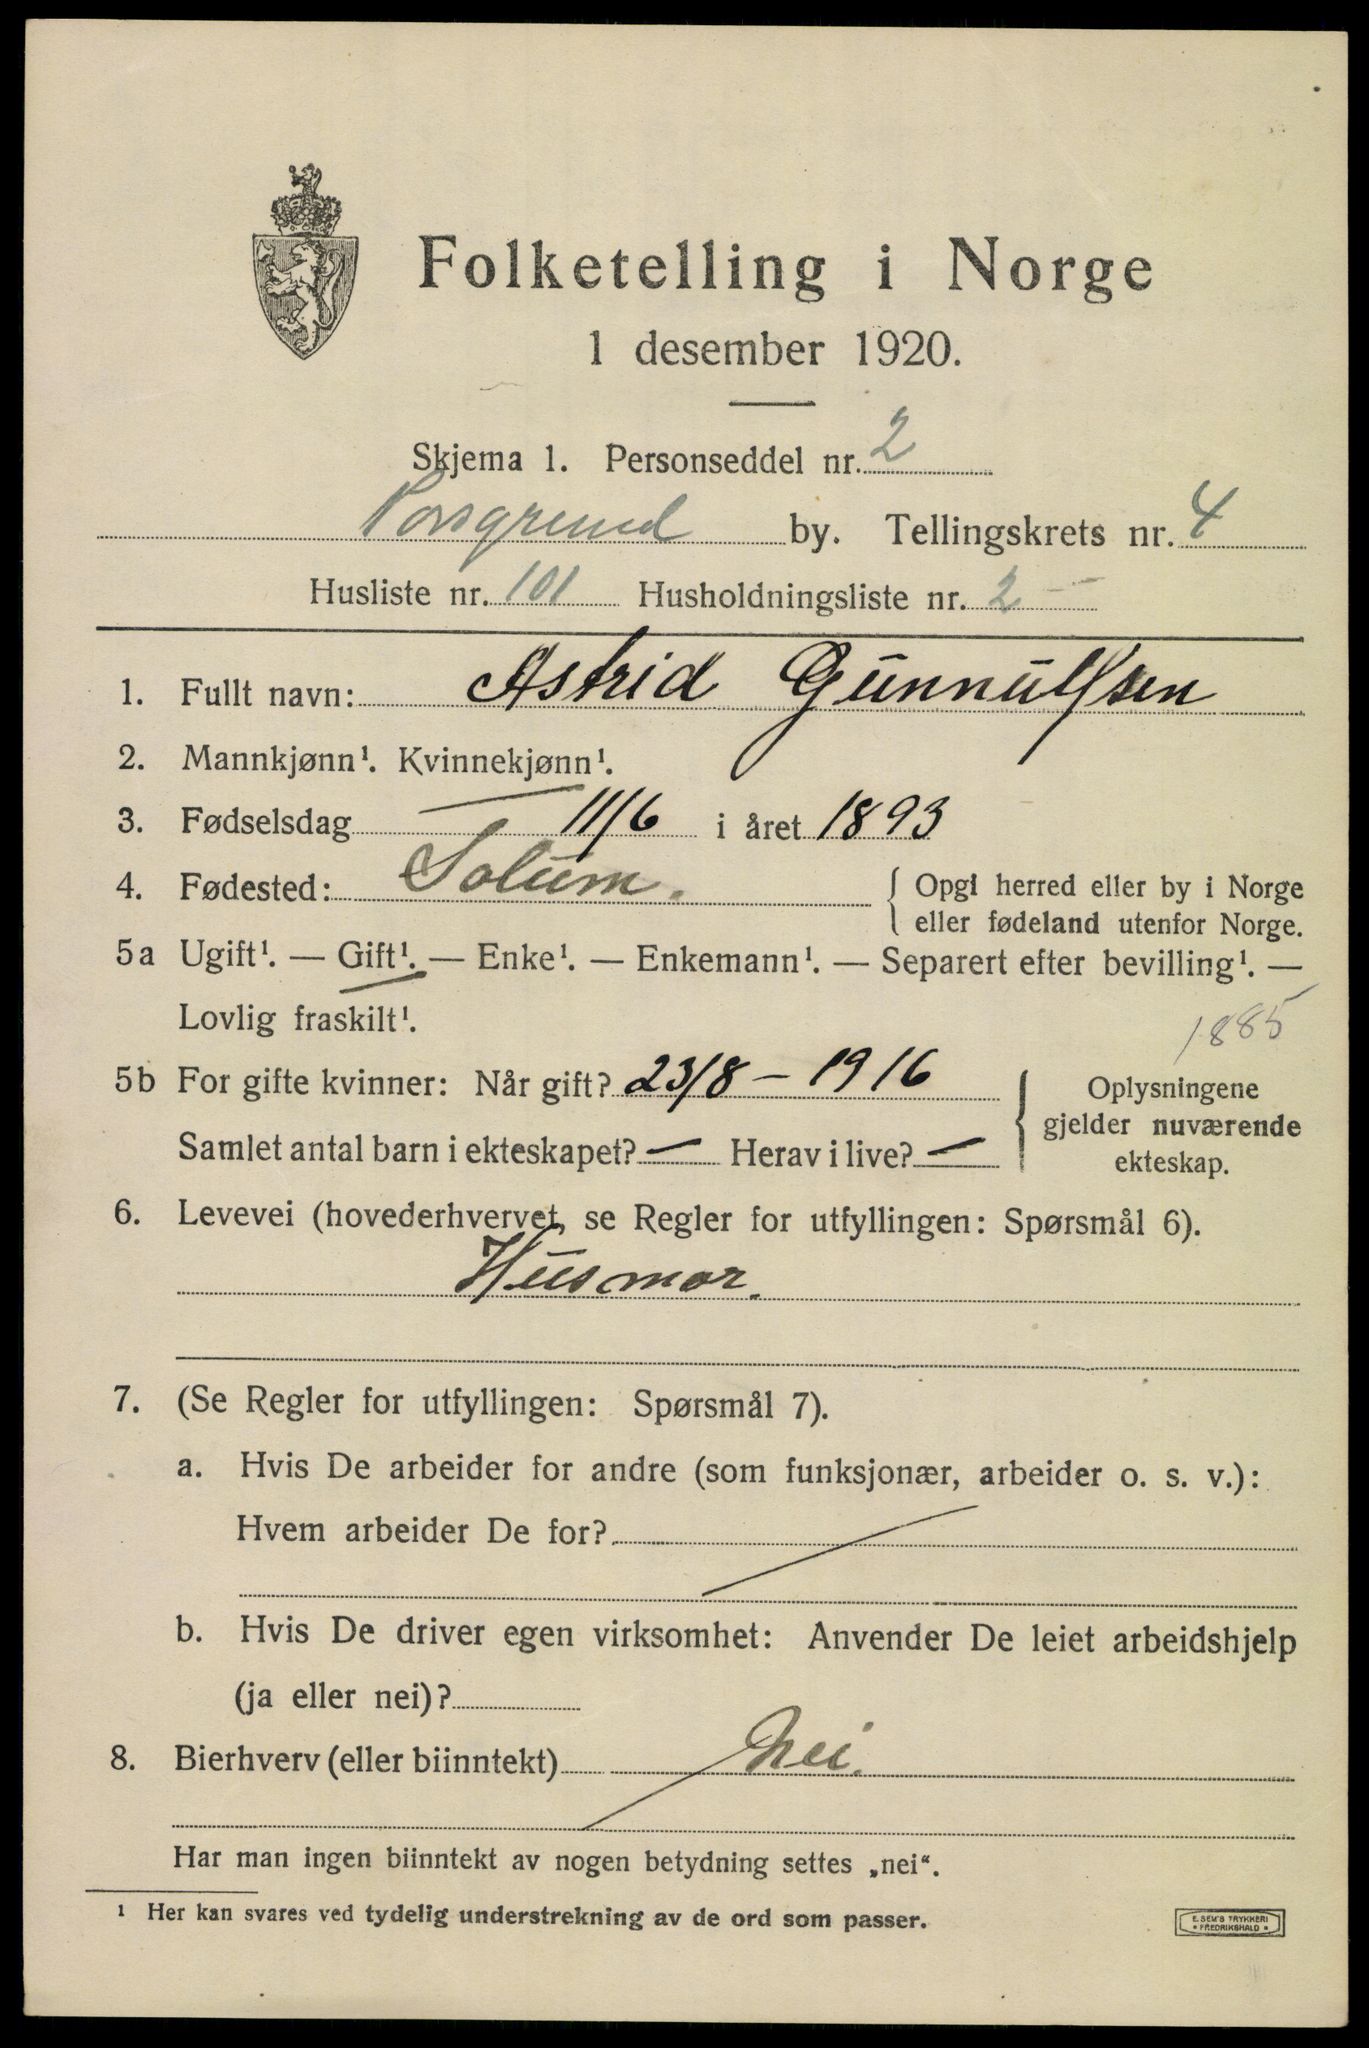 Folketelling i Norge
1 desember 1920.
Skjema 1. Personseddel nr. 2
Porsgrund by. Tellingskrets nr. 4
Husliste nr. 101 Husholdningsliste nr. 2
1. Fullt navn: Astrid Gunnulfsen
2. Mannkjønn¹. Kvinnekjønn¹.
3. Fødselsdag 11/6 i året 1893
4. Fødested: Solum. { Opgi herred eller by i Norge
eller fødeland utenfor Norge.
5a Ugift¹. — Gift¹. — Enke¹. — Enkemann¹. — Separert efter bevilling¹. —
Lovlig fraskilt¹.
1885
5b For gifte kvinner: Når gift? 23/8 – 1916
Samlet antal barn i ekteskapet? — Herav i live? —
{ Oplysningene
gjelder nuværende
ekteskap.
6. Levevei (hovederhvervet, se Regler for utfyllingen: Spørsmål 6).
Husmor.
7. (Se Regler for utfyllingen: Spørsmål 7).
a. Hvis De arbeider for andre (som funksjonær, arbeider o. s. v.):
Hvem arbeider De for?
b. Hvis De driver egen virksomhet: Anvender De leiet arbeidshjelp
(ja eller nei)?
8. Bierhverv (eller biinntekt) Nei.
Har man ingen biinntekt av nogen betydning settes „nei“.
¹ Her kan svares ved tydelig understrekning av de ord som passer.
E. SEM'S TRYKKERI
* FREDRIKSHALD *